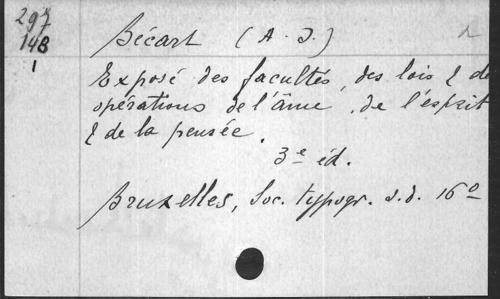 297
148
1
Bécart (A. J.)
Exposé des facultés, des lois & de
opérations de l'âme, de l'esprit
& de la pensée.
3e éd.
Bruxelles, Soc. typogr. s.d. 16o